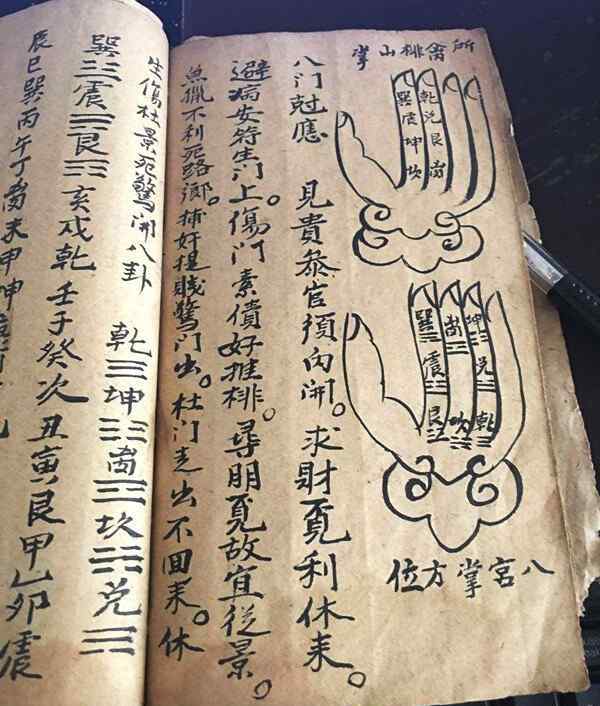 所禽排山掌
乾兑艮离
巽震坤坎
坤兑乾
离坎
巽震艮
八宮掌方位
八门尅應 見貴叅官須內開。求財覔利休来。
避病安符生门上。傷门索債好推排。尋朋覔故宜從景。
魚獵不利死路鄉。捕奸捉賊驚门出。杜门走出不囬来。休
生傷杜景死驚開八卦 乾☰坤☷离☲坎☵兑☱
巽☴震☳艮☶亥戌乾壬子癸次丑寅艮甲乙卯震
辰巳巽丙午丁离未申坤